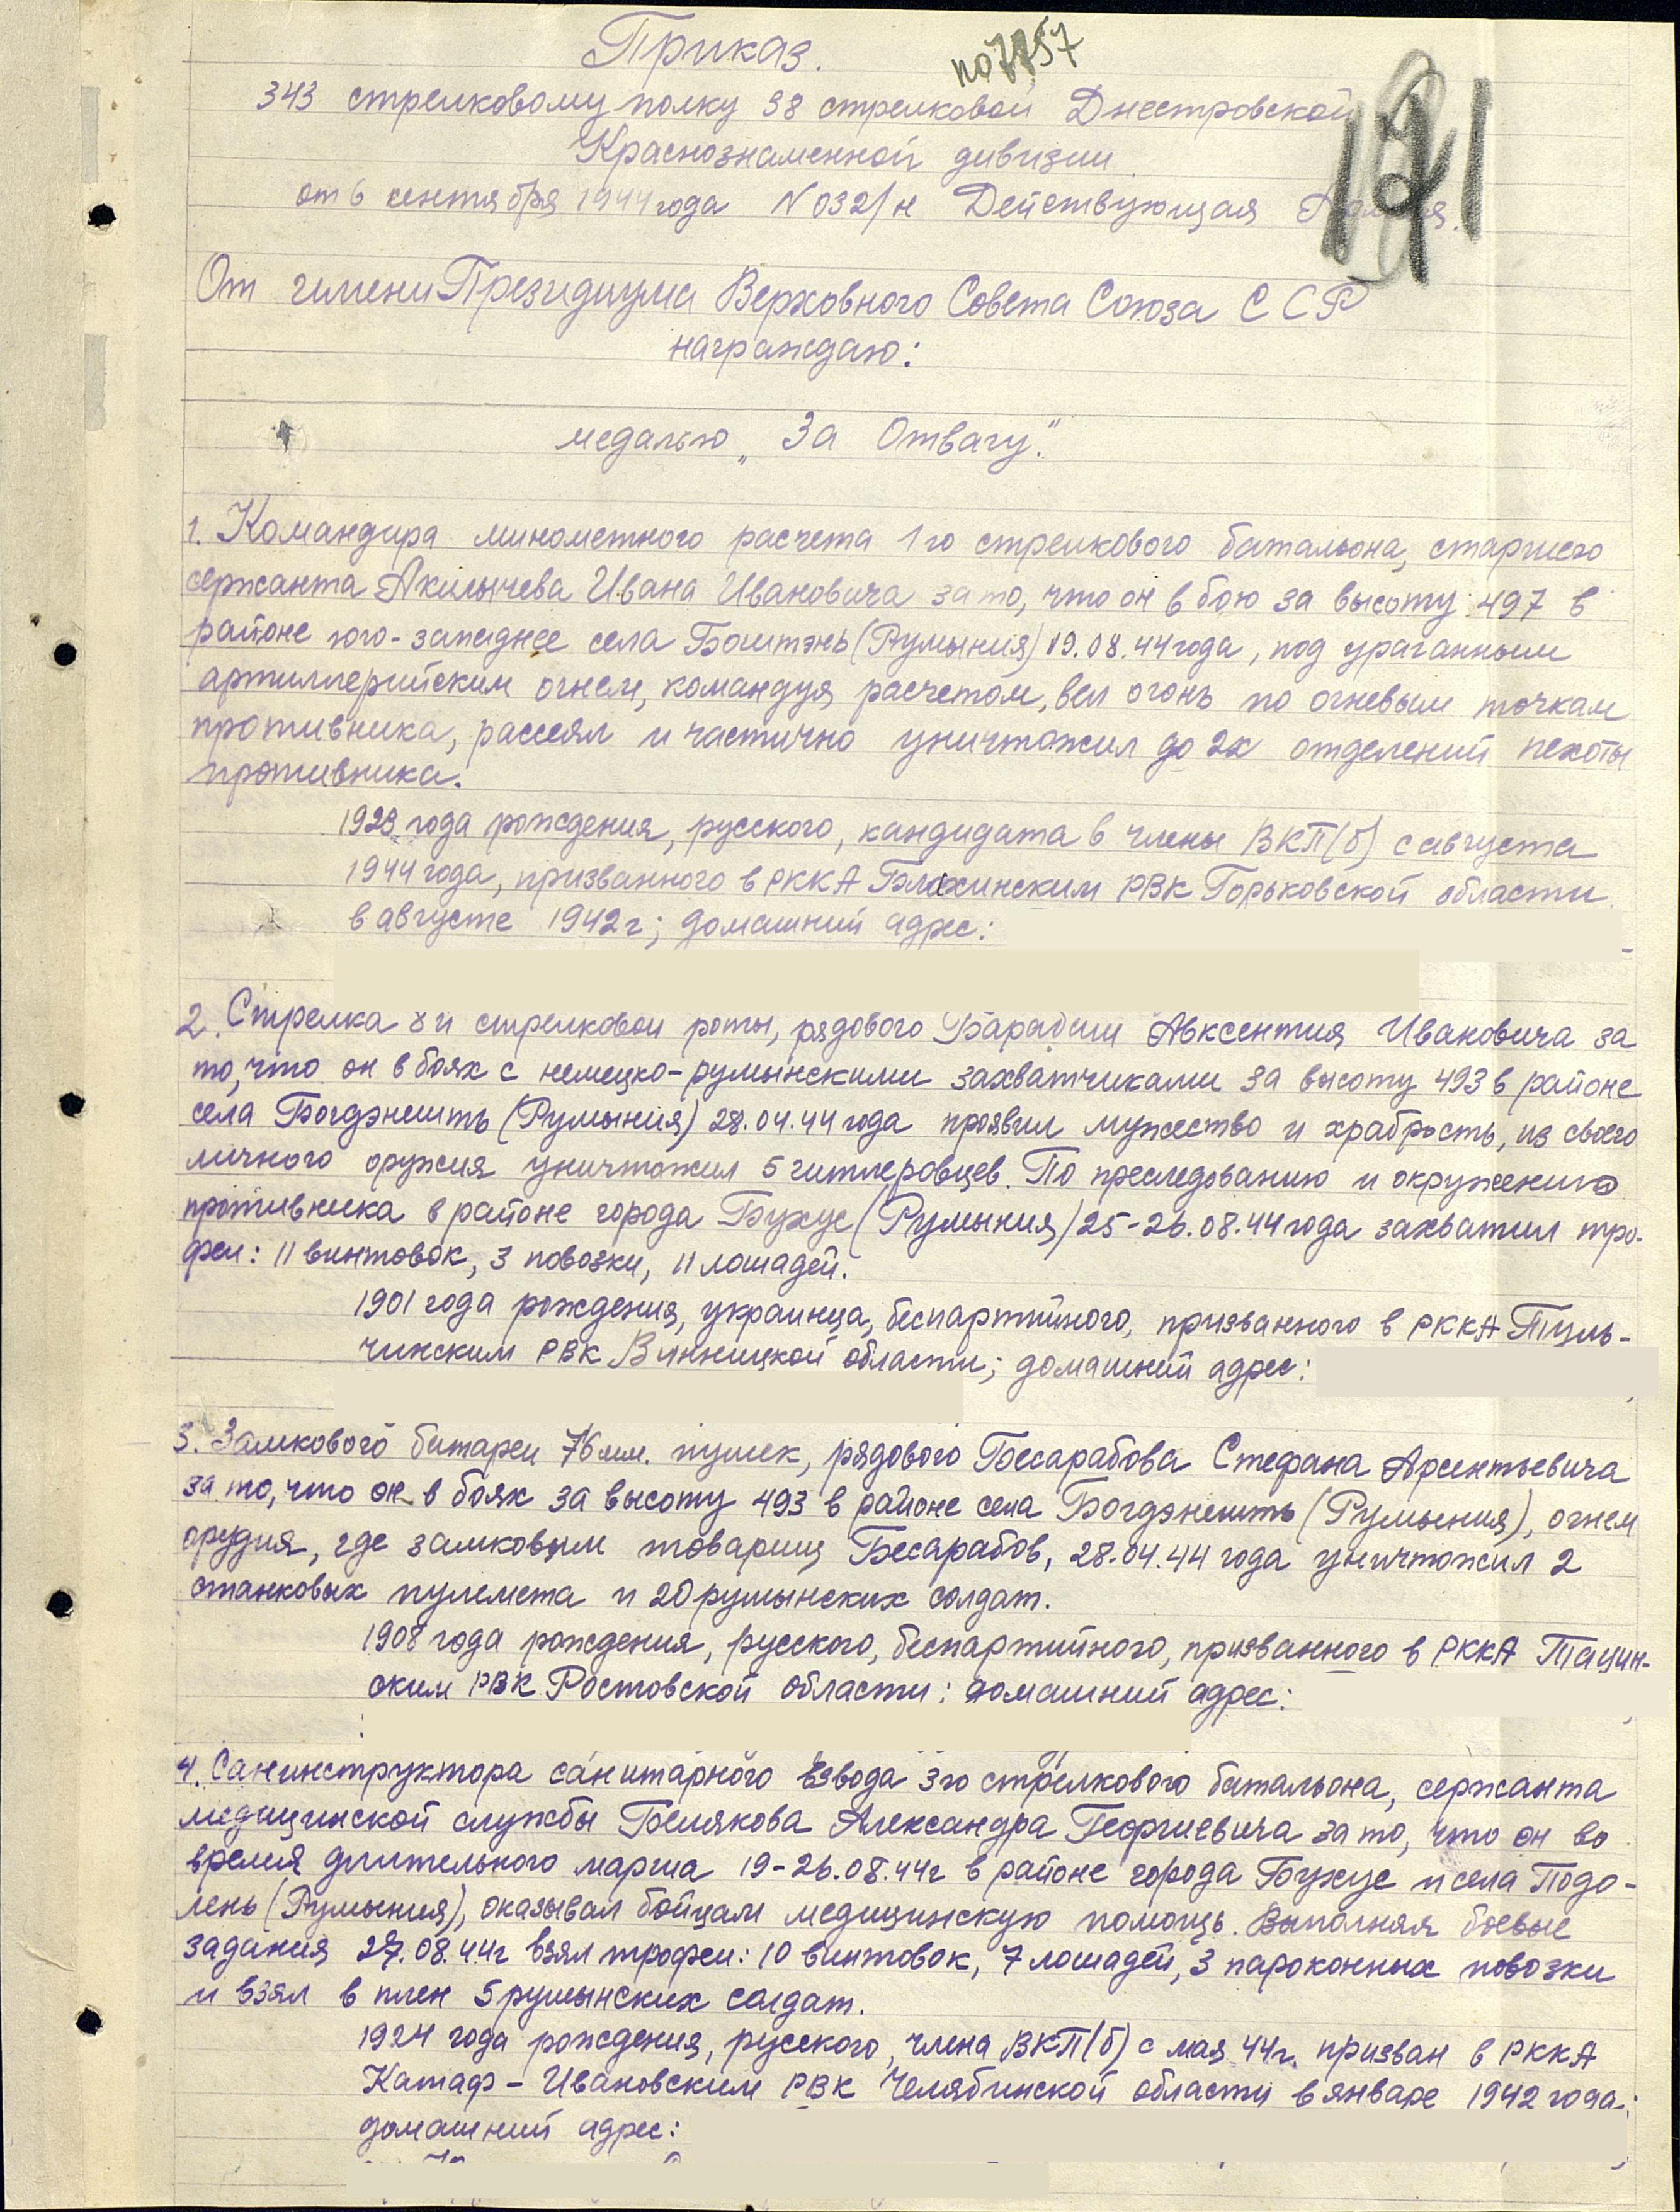 Приказ.
343 стрелковому полку 38 стрелковой Днестровской
Краснознаменной дивизии
от 6 сентября 1944 года N 032/н Действующая Армия.
От имени Президиума Верховного Совета Союза ССР
награждаю:
медалью „За Отвагу".
1. Командира минометного расчета 1го стрелкового батальона, старшего
сержанта Акилычева Ивана Ивановича за то, что он в бою за высоту 497 в
районе юго-западнее села Боштэнь (Румыния) 19.08.44 года, под ураганным
артиллерийским огнем, командуя расчетом, вел огонь по огневым точкам
противника, рассеял и частично уничтожил до 2х отделений пехоты
противника.
1923 года рождения, русского, кандидата в члены ВКП(б) с августа
1944 года, призванного в РККА Балахинским РВК Горьковской области
в августе 1942 г; домашний адрес:
2. Стрелка 8й стрелковой роты, рядового Барабаш Авксентия Ивановича за
то, что он в боях с немецко-румынскими захватчиками за высоту 493 в районе
села Богдэнешть (Румыния) 28.04.44 года проявил мужество и храбрость, из своего
личного оружия уничтожил 5 гитлеровцев. По преследованию и окружению
противника в районе города Бухус (Румыния) 25-26.08.44 года захватил тро-
феи: 11 винтовок, 3 повозки, 11 лошадей.
1901 года рождения, украинца, беспартийного, призванного в РККА Туль-
чинским РВК Винницкой области; домашний адрес:
3. Замкового батареи 76 мм. пушек, рядового Бесарабова Стефана Арсентьевича
за то, что он в боях за высоту 493 в районе села Богдэнешть (Румыния), огнем
орудия, где замковым товарищ Бесарабов, 28.04.44 года уничтожил 2
станковых пулемета и 20 румынских солдат.
1908 года рождения, русского, беспартийного, призванного в РККА Тацин-
ским РВК Ростовской области: домашний адрес:
4. Санинструктора санитарного взвода 3го стрелкового батальона, сержанта
медицинской службы Белякова Александра Георгиевича за то, что он во
время длительного марша 19-26.08.44г в районе города Бухус и села Подо-
лень (Румыния), оказывал бойцам медицинскую помощь. Выполняя боевые
задания 27.08.44г взял трофеи: 10 винтовок, 7 лошадей, 3 пароконных повозки
и взял в плен 5 румынских солдат.
1924 года рождения, русского, члена ВКП(б) с мая 44г. призван в РККА
Катаф-Ивановским РВК Челябинской области в январе 1942 года;
домашний адрес: